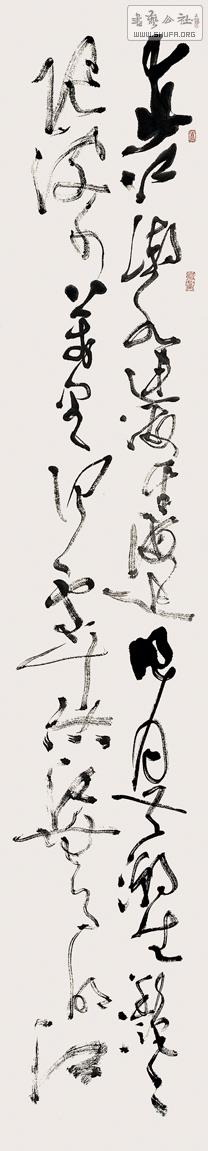 书艺公社
WWW.SHUFA.ORG
春江潮水連海平海上明月共潮生灩灩
隨波千萬里何處春江無月明